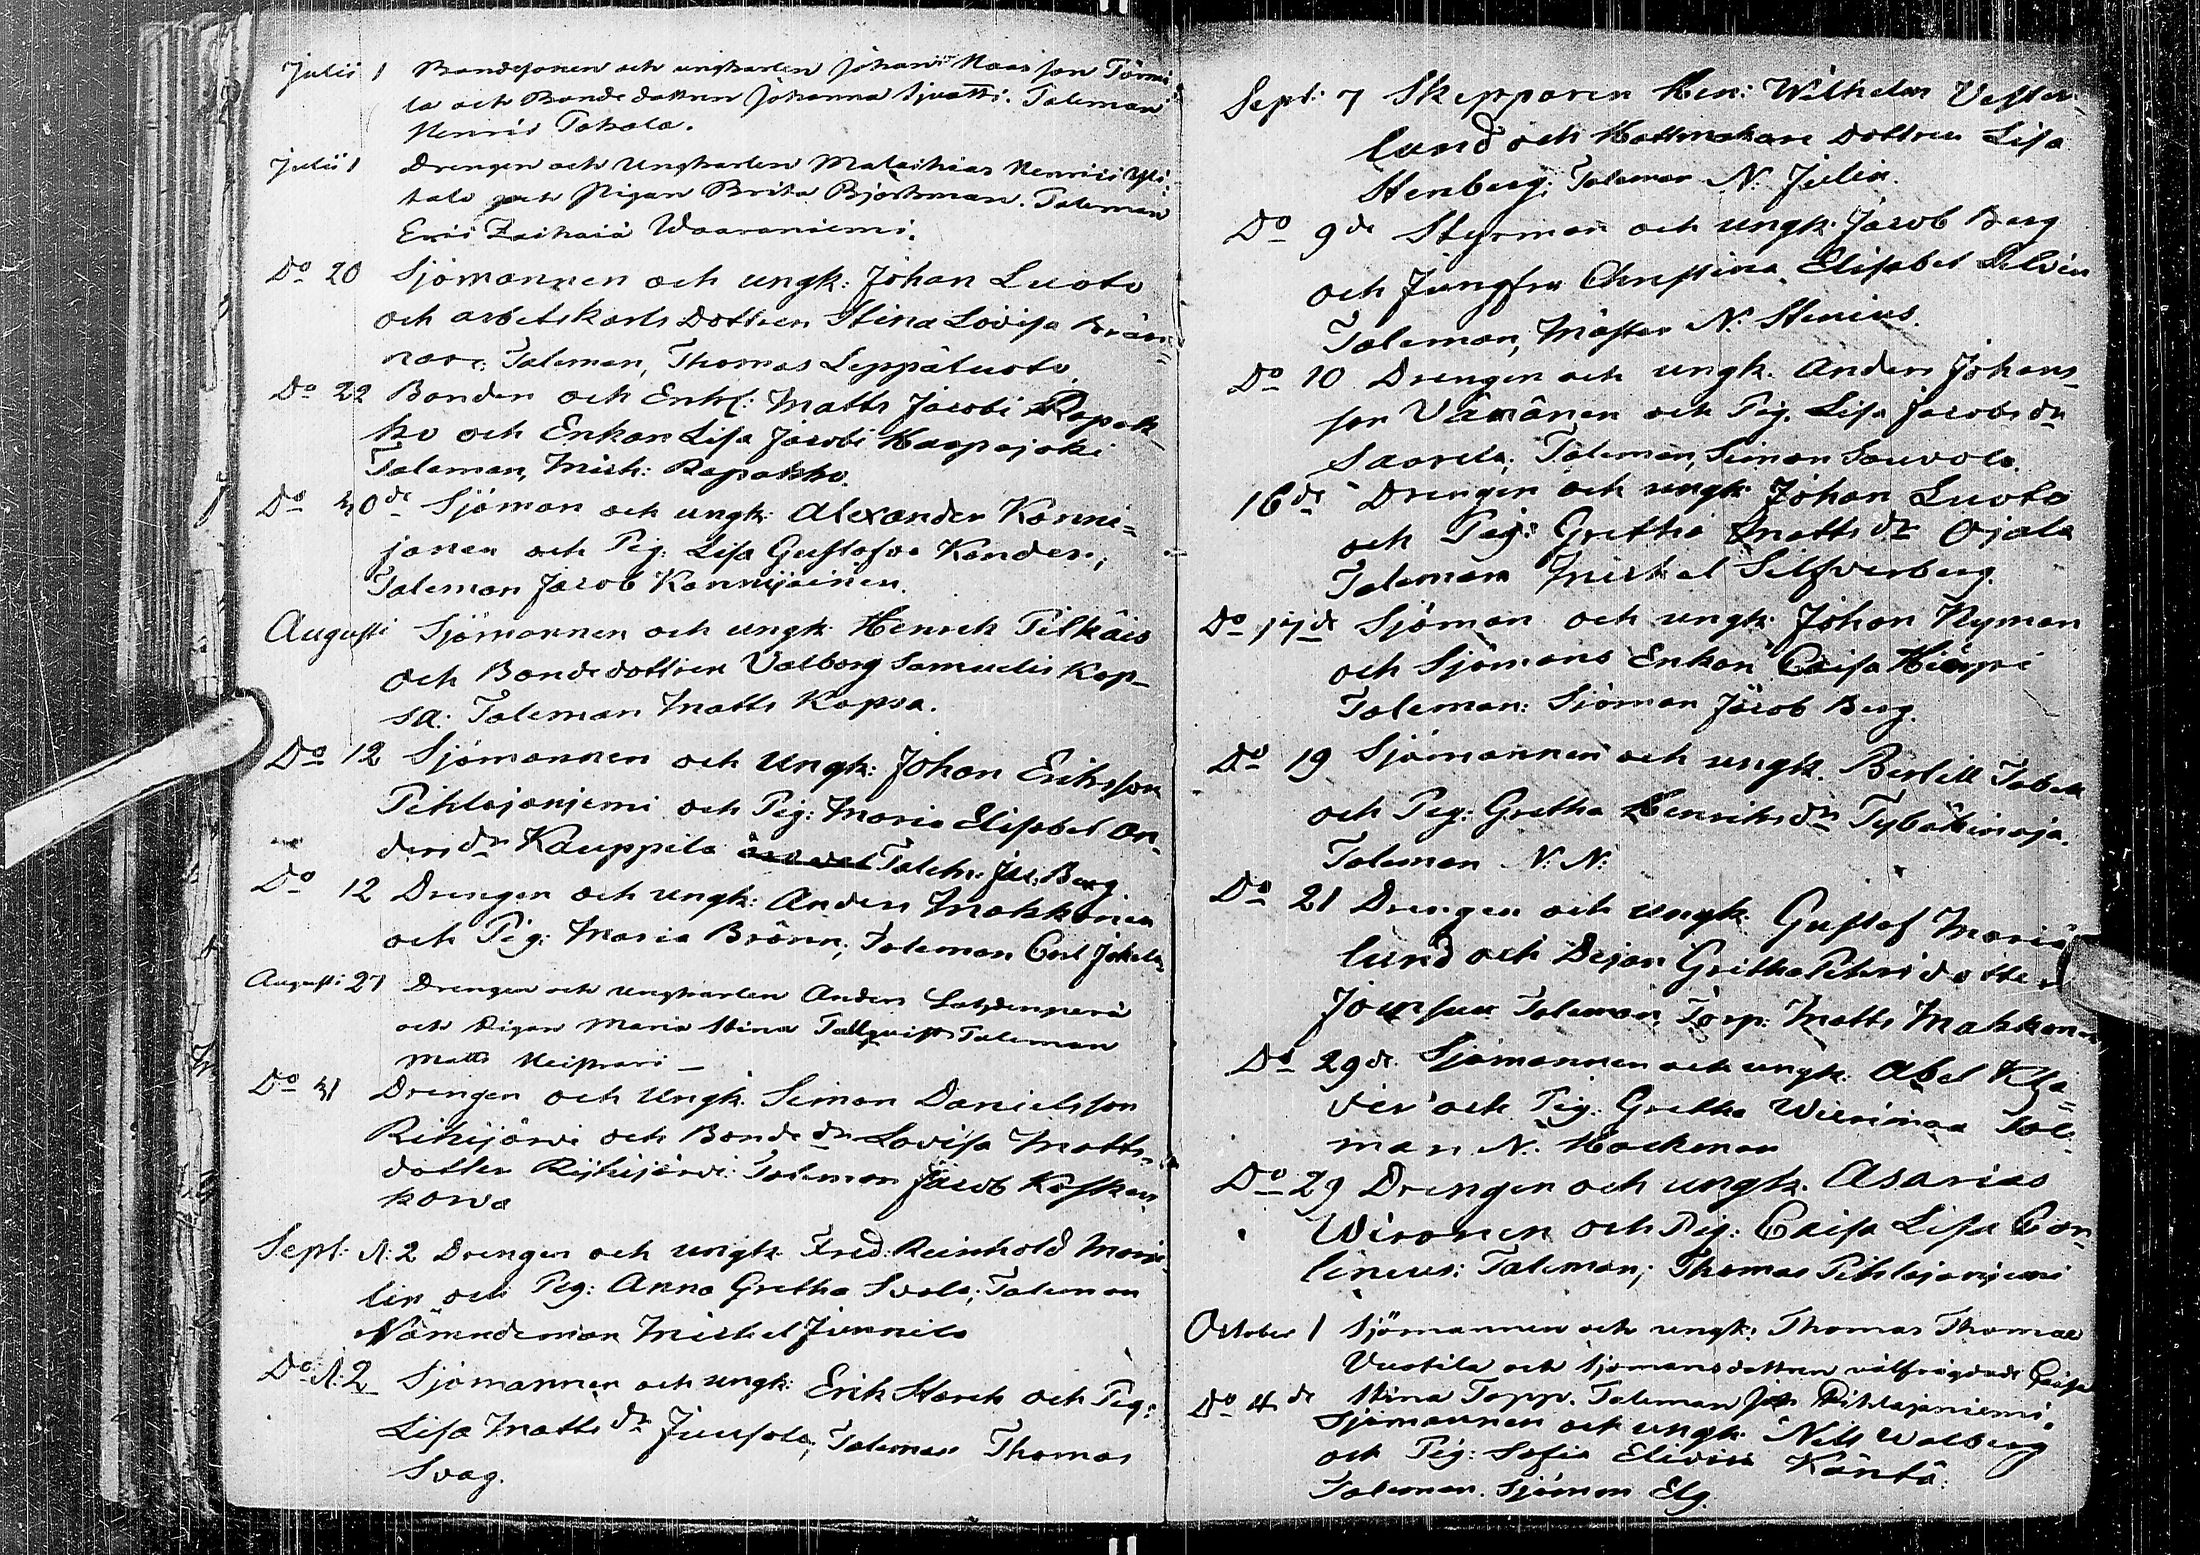 Julii 1 Bondesonen och ungkarlen Johan Mats son Törmä
la och Bonde dottren Johanna Sjvatti. Taleman
Henric Tokola.
Julii 1 Drengen och Ungkarlen Malachias Henrici Yli
talo och Pigan Brita Björkman. Taleman
Eric Zachaiæ Waaraniemi.
Do 20 Sjömannen och ungk: Johan Luoto
och arbetskarls dottren Stina Lovisa Brän
nare: Taleman, Thomas Leppäluoto
Do 22 Bonden och Enkl: Matts Jacobi Rapak
ko och Enkan Lisa Jacobi Haapajoki
Taleman, Mich: Rapakko.
Do 30de Sjöman och ungk: Alexander Konni=
janen och Pig: Lisa Gustafva Kander;
Taleman Jacob Konnijainen.
Augusti Sjömannen och ungk Henrik Pilkäis
och Bondedottren Valborg Samuelis Kop-
sa: Taleman Matts Kopsa.
Do 12 Sjömannen och Ungk: Johan Eriksson
Pihlajanjemi och Pig: Maria Elisabet An-
ders dr Kauppila Talem. Jac: Berg
Do 12 Drengen och ungk: Anders Makkonen
och Pig: Maria Brönn; Taleman Carl Jokela
Augusti 27 Drengen och ungkarlen Anders Lahdenperä
och Pigan Maria Stina Tallqvist Taleman
Matts Keiskari —
Do 31 Drengen och Ungk. Simon Danielsson
Rihijärvi och Bonde dr Lovisa Matts-
dotter Rijhijärvi. Taleman Jacob Kåskan
kova
Sept: d: 2 Drengen och ungk Fred: Reinhold More
lin och Pig: Anna Gretha Svala; Taleman
Nämndeman Michel Junnila
Do d: 2 Sjömannen och ungk: Erik Storck och Pig:
Lisa Matts dr Juusola, Taleman Thomas
Svag.
Sept: 7 Skepparen Hen: Wilhelm Vester-
lund och Hattmakare Dottren Lisa
Stenberg; Taleman N: Julin.
Do 9de Styrman och ungk: Jacob Berg
och Jungfru Christina Elisabet Delvin
Taleman, Mäster N: Stenius.
Do 10 Drengen och ungk. Anders Johans-
son Väänänen och Pig. Lisa Jacobs dr
Saarela; Taleman, Simon Sauvola.
16de Drengen och ungk Johan Luoto
och Pig: Gretha Matts dr Ojala
Taleman Michel Silfverberg.
Do 17de Sjöman och ungk: Johan Nyman
och Sjömans Enkan Caisa Kämpi
Taleman: Sjöman Jacob Berg.
Do 19 Sjömannen och ungk. Bertill Tabell
och Pig: Gretha Henriks dr Tybäkinoja.
Taleman N: N:
Do 21 Drengen och ungk Gustaf Maria
lund och Pigan Gretha Petri dotter
Jounsuu Taleman, Torp: Matts Makkonen
Do 29de Sjömannen och ungk: Abel Kla=
ver och Pig: Gretha Wierimaa Tal:
man N. Hackman
Do 29 Drengen och ungk. Asarias
Wironen och Pig: Caisa Lisa Cor-
lineus; Taleman; Thomas Pihlajanjemi
October 1 Sjömannen och ungk: Thomas Thomae
Vuotila och Sjömansdottren välfrägdade Caisa
Stina Topp. Taleman Joh Pihlajaniemi.
Do 4de Sjömannen och ungk Nils Walberg
och Pig: Sofia Elivira Käntä:
Taleman. Sjöman Elg.